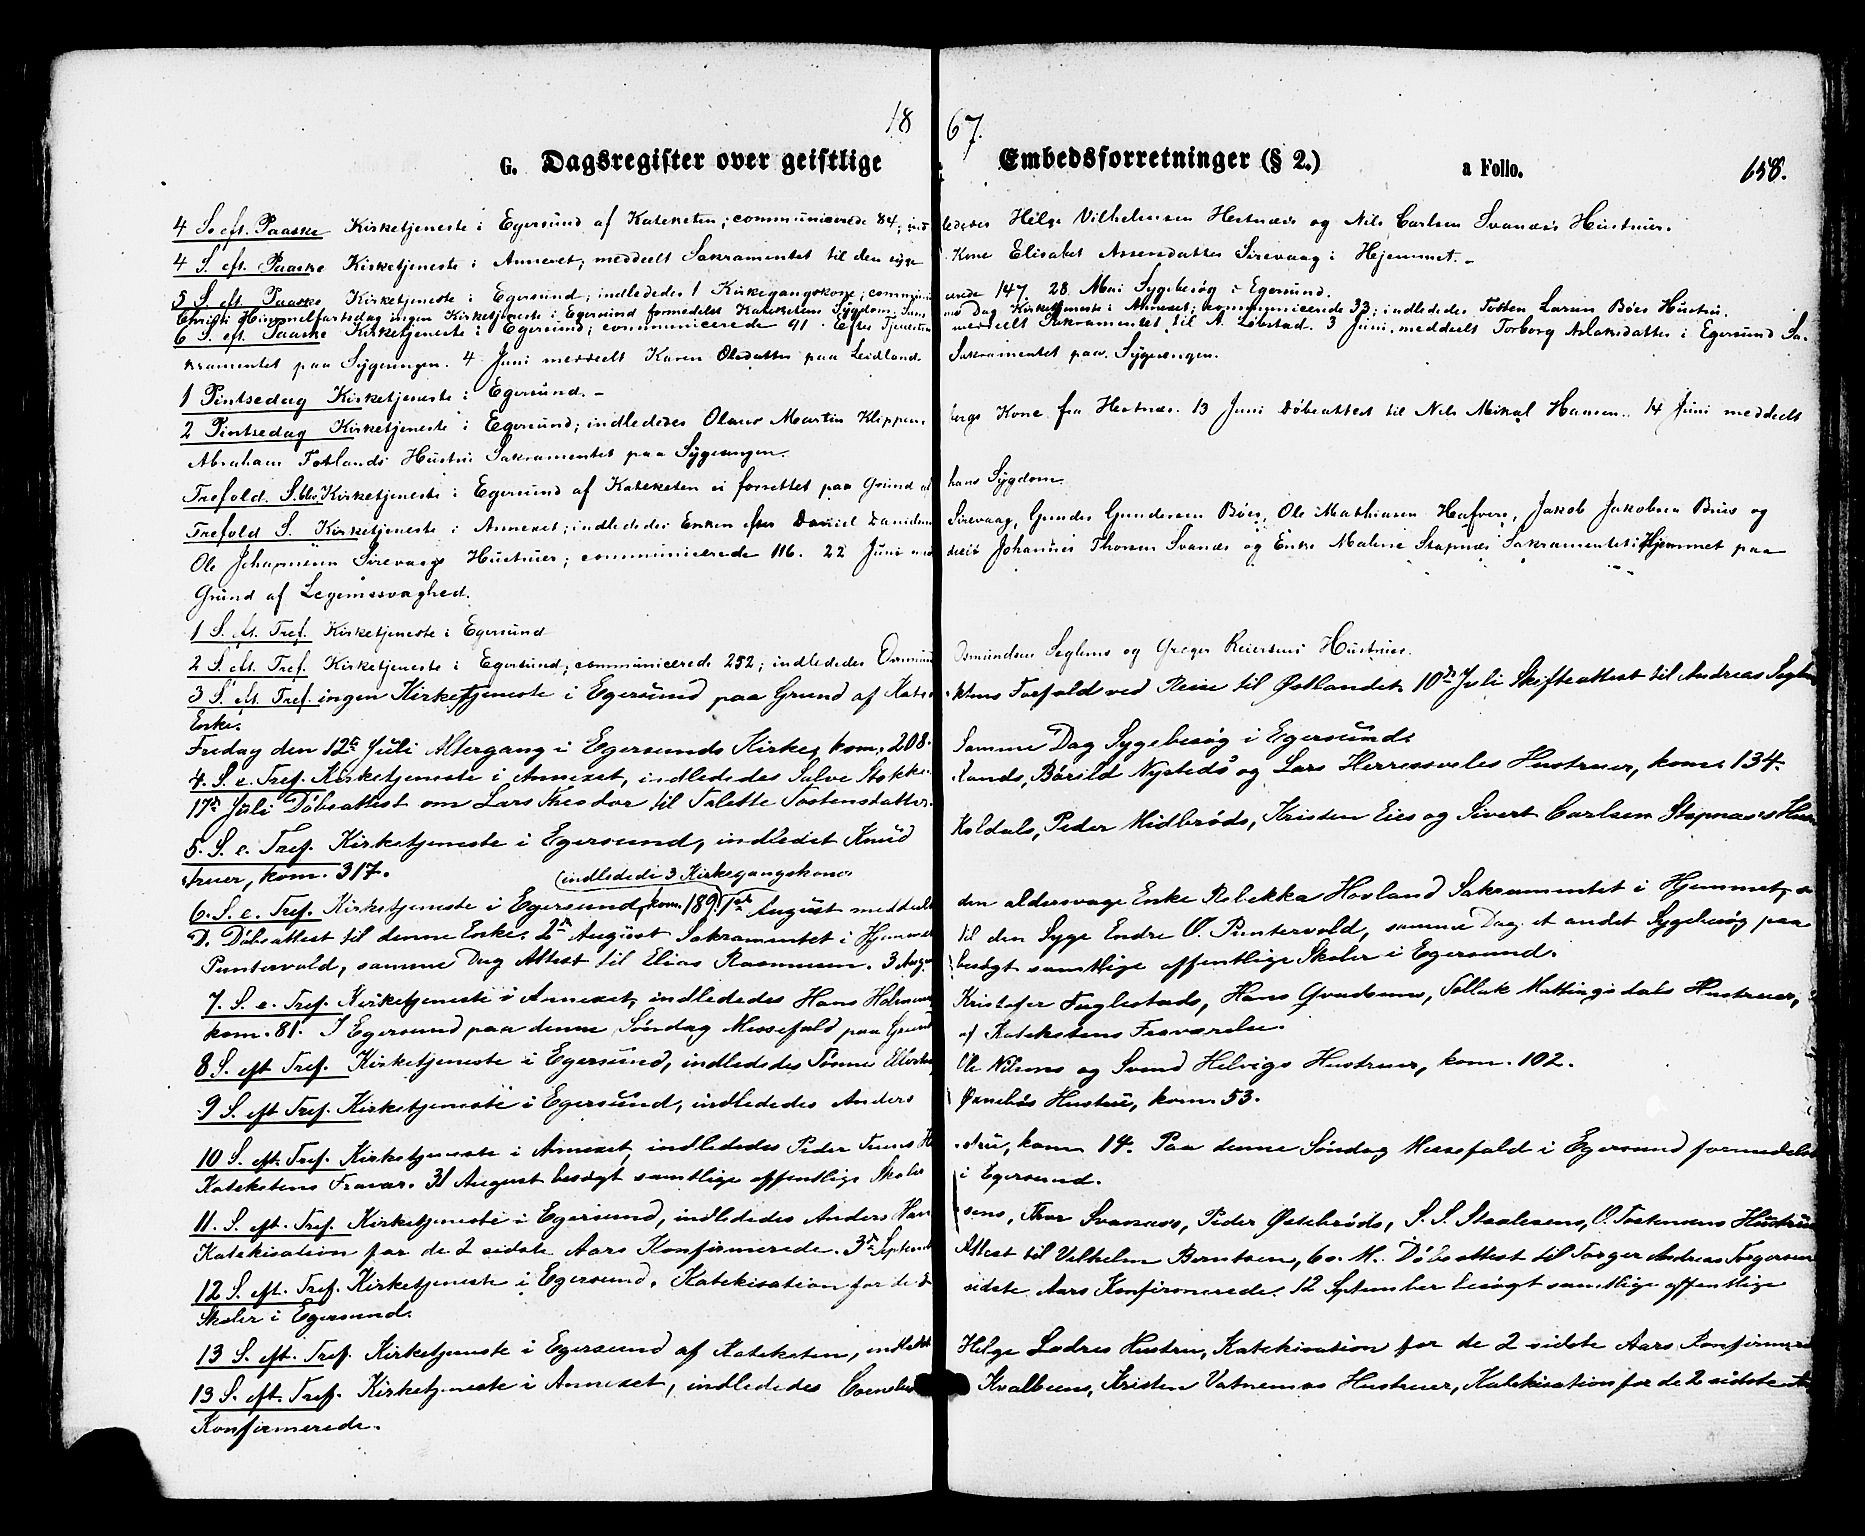 1867.
G. Dagsregister over geistlige Embedsforretninger (§ 2.) a Folio. 658.
4 S. eft. Paaske Kirketjeneste i Egersund af Kateketen; communicerede 84; indlededes Helge Vilhelmsen Hestnæs og Nils Carlsen Svanæs Hustruer.
4 S. eft. Paaske Kirketjeneste i Annexet; meddeelt Sakramentet til den syge Kone Elisabet Assersdatter Sirevaag i Hjemmet. -
5 S. eft. Paaske Kirketjeneste i Egersund; indlededes 1 Kirkegangskone; communicerede 147. 28. Mai Sygebesøg i Egersund.
Christi Himmelfartsdag ingen Kirketjeneste i Egersund formedelst Katekетens Sygdom; Samme Dag Kirketjeneste i Annexet; kommunicerede 33; indlededes Tosten Larsen Bøes Hustru.
6 S. eft. Paaske Kirketjeneste i Egersund; communicerede 91. Efter Tjenesten meddeelt Sakramentet til A. Løbstad. 3 Juni meddeelt Torborg Aslaksdatter i Egersund Sa-
kramentet paa Sygesengen. 4 Juni meddeelt Karen Olsdatter paa Leidland Sakramentet paa Sygesengen.
1 Pintsedag Kirketjeneste i Egersund. -
2 Pintsedag Kirketjeneste i Egersund; indlededes Olaus Martin Klippenbergs Kone fra Hestnæs. 13 Juni Døbeattest til Nils Mikal Hansen. 14 Juni meddelt
Abraham Totlands Hustru Sakramentet paa Sygesengen.
Trefold. S. blev Kirketjeneste i Egersund af Kateketen ei forrettet paa Grund af hans Sygdom.
Trefold S. Kirketjeneste i Annexet; indlededes Enken efter Daniel Danielsen Sirevaag, Gunder Gundersen Bøes, Ole Mathiasen Hafsøe, Jakob Jakobsen Bues og
Ole Johannesen Sirevaags Hustruer; communicerede 116. 22 Juni meddeelt Johannes Thorsen Svanæs og Enke Malene Stapnæs Sakramentet i Hjemmet paa
Grund af Legemssvaghed.
1 S. eft. Tref. Kirketjeneste i Egersund
2 S. eft. Tref. Kirketjeneste i Egersund; communicerede 252; indlededes Osmund Osmundsen Seglems og Greger Reiersens Hustruer.
3 S. eft. Tref. ingen Kirketjeneste i Egersund paa Grund af Kateketens Forfald ved Reise til Østlandet. 10de Juli Skifteattest til Andreas Seglems
Enke.
Fredag den 12te Juli Altergang i Egersunds Kirke, kom. 208. Samme Dag Sygebesøg i Egersund.
4. S. e. Tref. Kirketjeneste i Annexet, indlededes Salve Stokkelands, Bårild Nysteds og Lars Herresveles Hustruer, kom. 134.
17de Juli Døbsattest om Lars Theodor til Talette Tostensdatter.
5. S. e. Tref. Kirketjeneste i Egersund, indledet Knud Koldals, Peder Midbrøds, Kristen Eies og Sivert Carlsen Stapnæs's Hus-
truer, kom. 317.
(indledede 3 Kirkegangskoner
6. S. e. Tref. Kirketjeneste i Egersund, kom. 189. 1ste August meddeelt den aldersvage Enke Rebekka Hovland Sakramentet i Hjemmet, s.
D. Døbsattest til denne Enke. 2den August Sakramentet i Hjemmet til den syge Endre O. Puntervold, samme Dag et andet Sygebesøg paa
Puntervold, samme Dag Attest til Elias Rasmusen. 3 Aug. besøgt samtlige offentlige Skoler i Egersund.
7. S. e. Tref. Kirketjeneste i Annexet, indlededes Hans Kristofer Fuglestads, Hans Gvadsens, Tollak Mattingsdals Hustruer,
kom. 81. I Egersund paa denne Søndag Messefald paa Grund af Kateketens Fraværelse.
8 S. eft Tref. Kirketjeneste i Egersund, indlededes Tønnes Ole Nilsens og Svend Helvigs Hustruer, kom. 102.
9 S. eft Tref. Kirketjeneste i Egersund, indlededes Anders Hustru, kom. 53.
10 S. eft. Tref. Kirketjeneste i Annexet, indlededes Peder Hustru, kom 14. Paa denne Søndag Messefald i Egersund formedelst
Kateketens Fravær. 31 August besøgt samtlige offentlige Skoler i Egersund.
11. S. eft. Tref. Kirketjeneste i Egersund, indlededes Anders Hansens, Thor Svanæs, Peder Østebrøds, S. S. Staalesens, O. Tostensens Hustruer
Katekisation for de 2 sidste Aars Konfirmerede. 3de September Attest til Vilhelm Berntsen, 6. M. Døbsattest til Torger Andreas Torgersen
12 S. eft. Tref. Kirketjeneste i Egersund. Katekisation for de 2 sidste Aars Konfirmerede. 12 September besøgt samtlige offentlige
Skoler i Egersund.
13 S. eft. Tref. Kirketjeneste i Egersund af Kateketen, indledet Helge Ladres Hustru, Katekisation for de 2 sidste Aars Konfirmerede
13 S. eft. Tref. Kirketjeneste i Annexet, indlededes Kvalbeins, Kristen Vatnemos Hustruer, Katekisation for de 2 sidste
Konfirmerede.